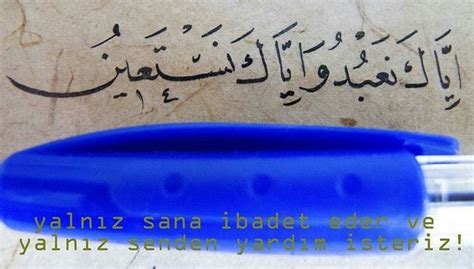 إِيَّاكَ نَعْبُدُ وَإِيَّاكَ نَسْتَعِينُ
١٤
yalnız sana ibadet eder ve
yalnız senden yardım isteriz!